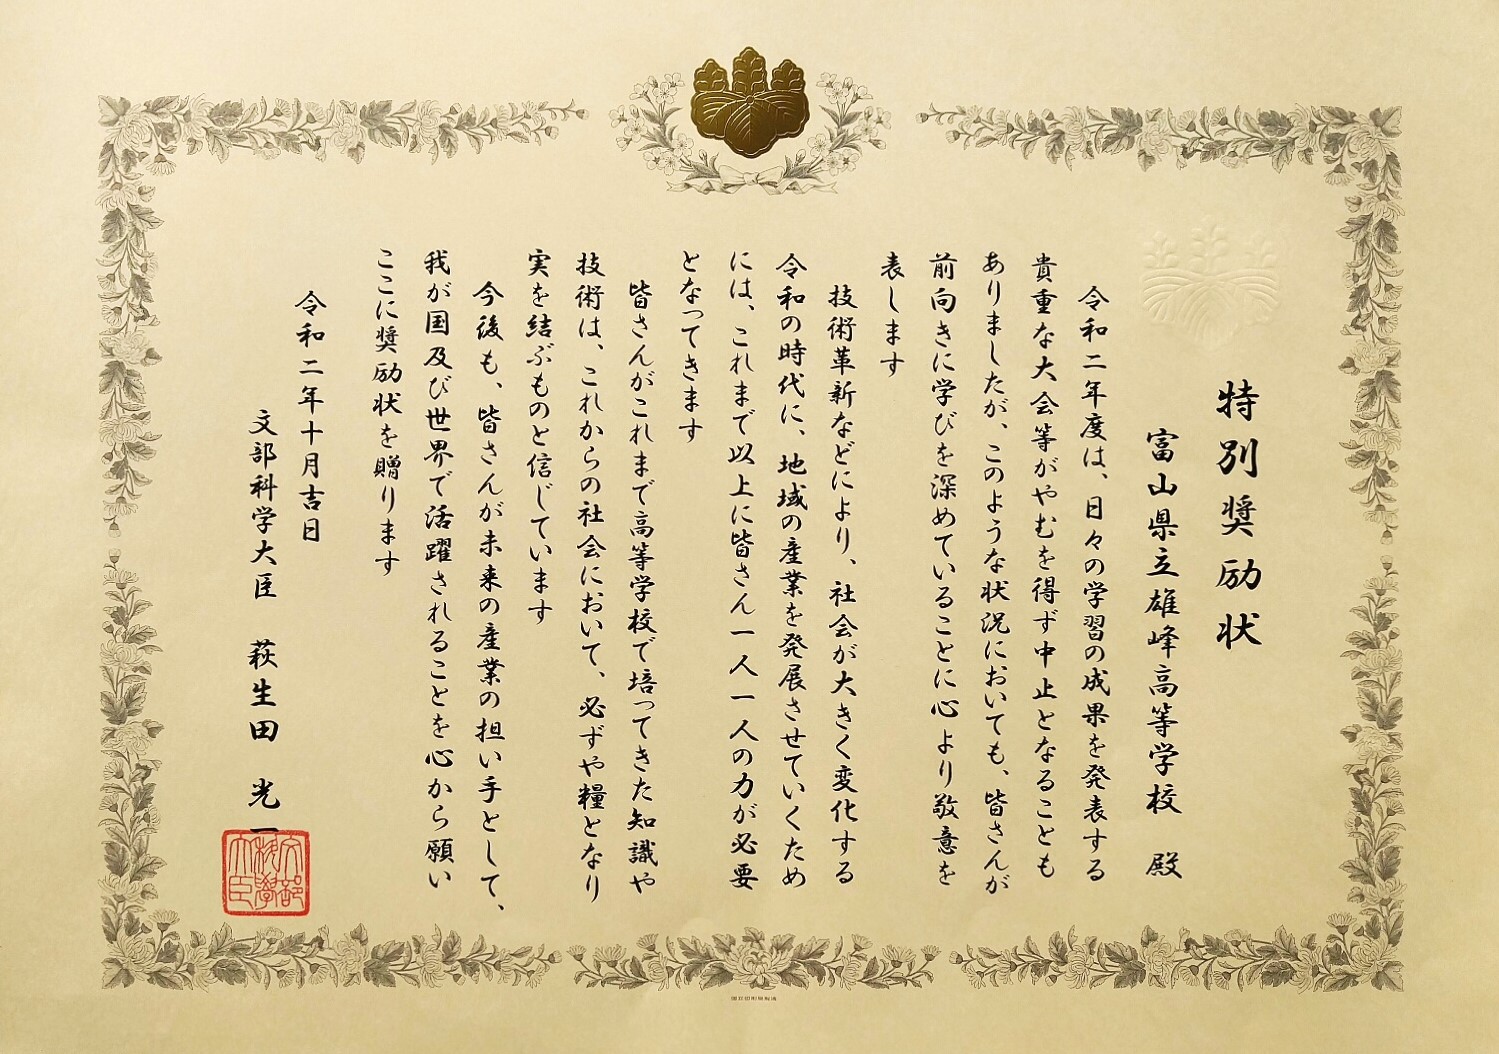 特別奨励状
富山県立雄峰高等学校 殿
令和二年度は、日々の学習の成果を発表する
貴重な大会等がやむを得ず中止となることも
ありましたが、このような状況においても、皆さんが
前向きに学びを深めていることに心より敬意を
表します
技術革新などにより、社会が大きく変化する
令和の時代に、地域の産業を発展させていくため
には、これまで以上に皆さん一人一人の力が必要
となってきます
皆さんがこれまで高等学校で培ってきた知識や
技術は、これからの社会において、必ずや糧となり
実を結ぶものと信じています
今後も、皆さんが未来の産業の担い手として、
我が国及び世界で活躍されることを心から願い
ここに奨励状を贈ります
令和二年十月吉日
文部科学大臣 萩生田 光一
文部科学大臣